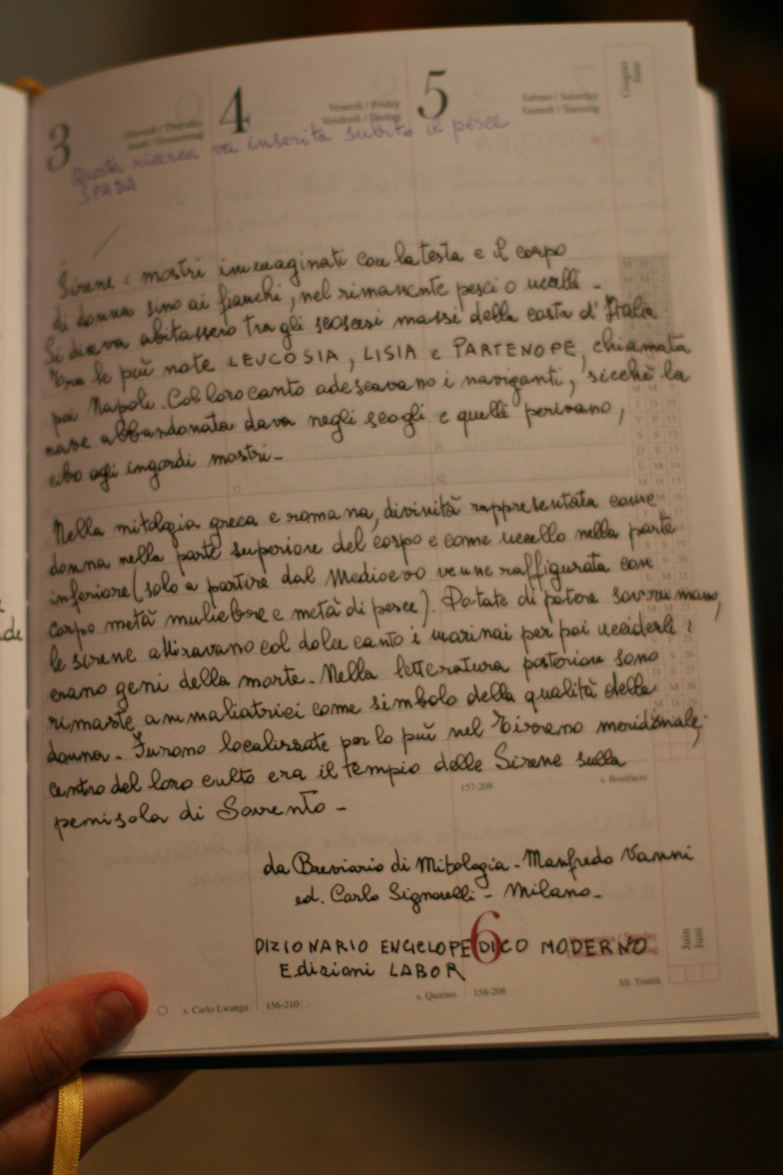 3 Giovedì / Thursday
Jeudi / Donnerstag
4 Venerdì / Friday
Vendredi / Freitag
5 Sabato / Saturday
Samedi / Samstag
Giugno
June
Questa ricerca va inserita subito il pesce
SPADA
Sirene: mostri immaginati con la testa e il corpo
di donna sino ai fianchi, nel rimanente pesci o uccelli -
Si diceva abitassero tra gli scoscesi massi della costa d'Italia
Tra le più note LEUCOSIA, LISIA e PARTENOPE, chiamata
poi Napoli. Col loro canto adescavano i naviganti, sicchè la
nave abbandonata dava negli scogli e quelli perivano,
cibo agli ingordi mostri -
Nella mitologia greca e romana, divinità rappresentata come
donna nella parte superiore del corpo e come uccello nella parte
inferiore (solo a partire dal Medioevo venne raffigurata con
corpo metà muliebre e metà di pesce). Dotate di potere sovrumano,
le sirene attiravano col dolce canto i marinai per poi ucciderli:
erano geni della morte. Nella letteratura posteriore sono
rimaste ammaliatrici come simbolo della qualità della
donna. Furono localizzate per lo più nel Tirreno meridionale;
centro del loro culto era il tempio delle Sirene sulla
penisola di Sorrento -
157-209
s. Bonifacio
da Breviario di Mitologia - Manfredo Vanni
ed. Carlo Signorelli - Milano -
6
DIZIONARIO ENCICLOPEDICO MODERNO
Edizioni LABOR
Juin
Juni
s. Carlo Lwanga 156-210
s. Quirino 158-208
SS. Trinità